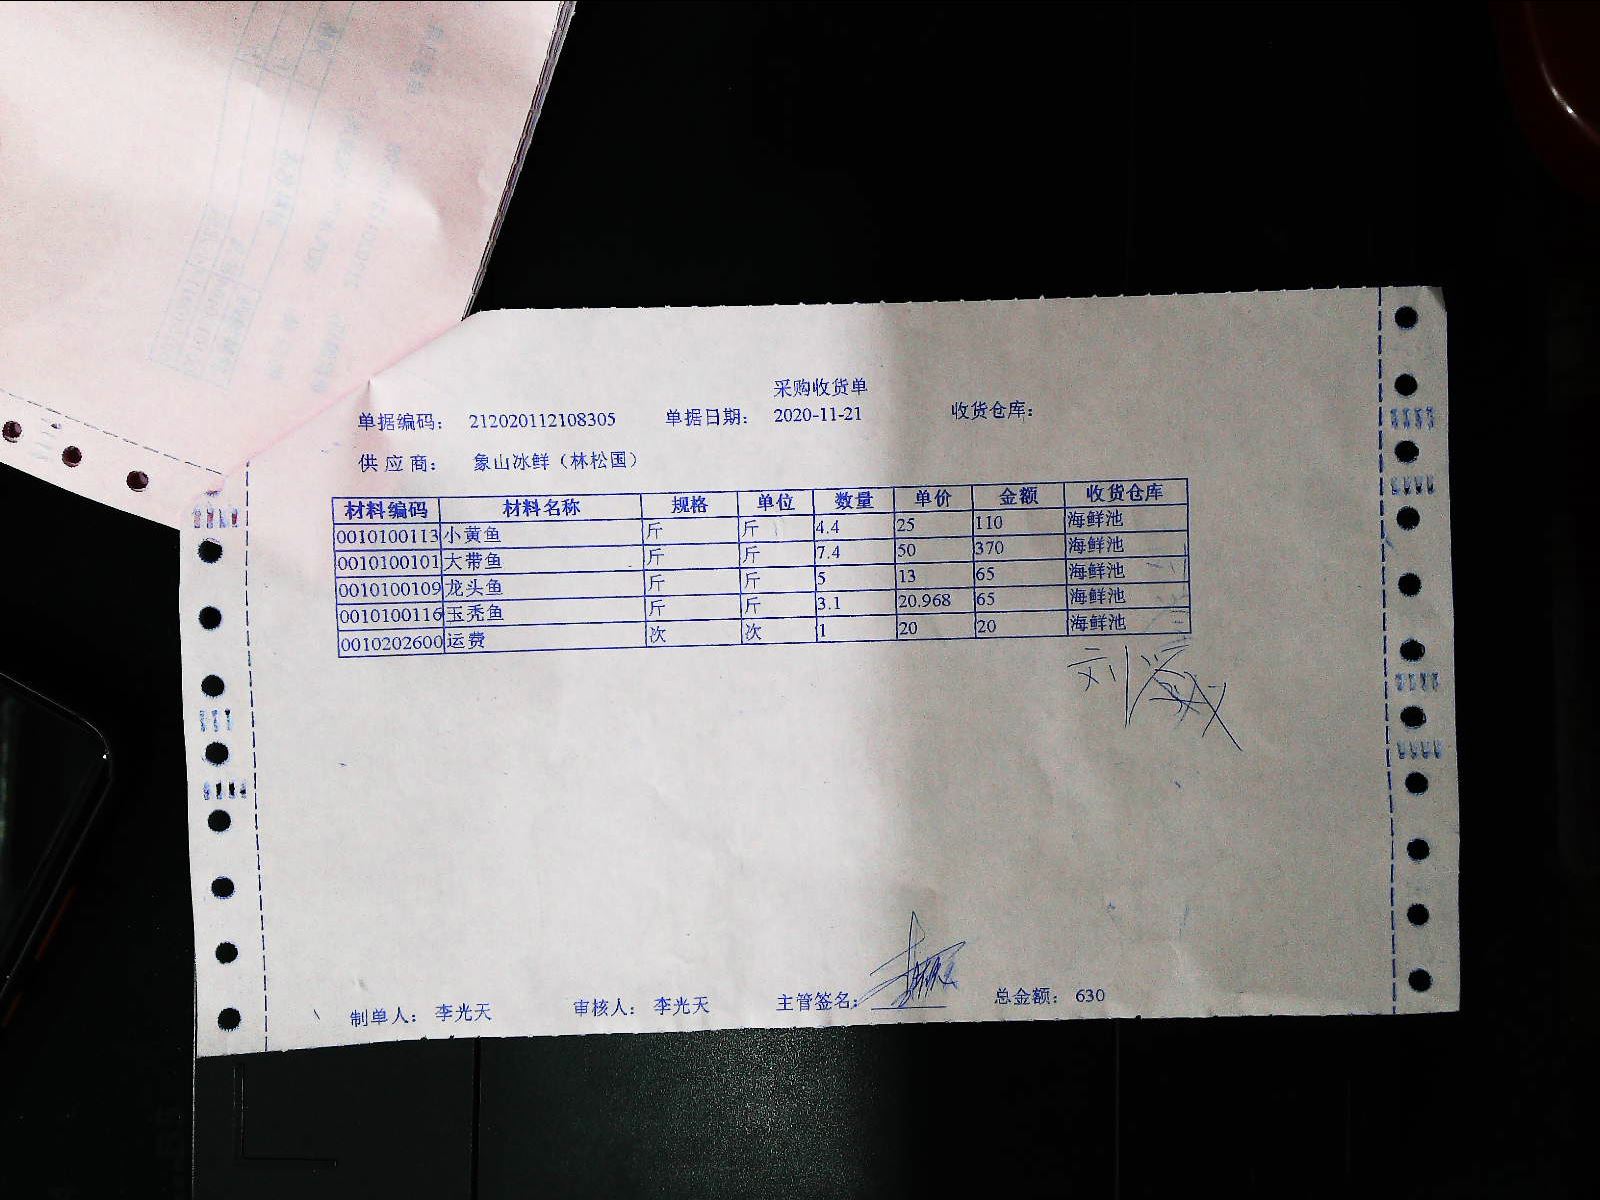 采购收货单
单据编码： 212020112108305 单据日期： 2020-11-21 收货仓库：
供 应 商： 象山冰鲜（林松国）
材料编码 材料名称 规格 单位 数量 单价 金额 收货仓库
0010100113 小黄鱼 斤 斤 4.4 25 110 海鲜池
0010100101 大带鱼 斤 斤 7.4 50 370 海鲜池
0010100109 龙头鱼 斤 斤 5 13 65 海鲜池
0010100116 玉秃鱼 斤 斤 3.1 20.968 65 海鲜池
0010202600 运费 次 次 1 20 20 海鲜池
制单人： 李光天 审核人： 李光天 主管签名： 总金额： 630